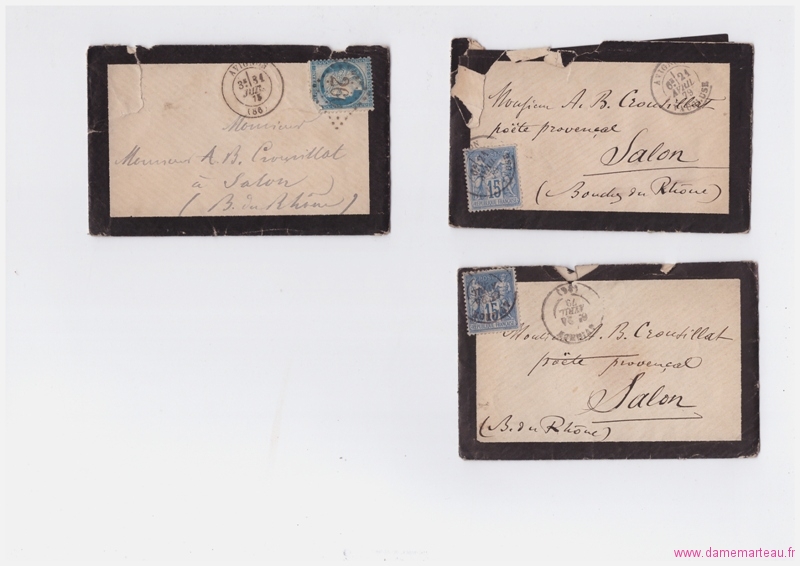 AVIGNON
3E 31
JUIL.
75
(86)
26
Monsieur
Monsieur A. B. Crousillat
à Salon
(B. du Rhône)
AVIGNON
6E 21
AVRIL
VAUCLUSE
Monsieur A. B. Crousillat
poëte provençal
Salon
(Bouches du Rhône)
15
REPUBLIQUE FRANÇAISE
15
AVIGNON
6E 24
AVRIL
Monsieur A. B. Crousillat
poëte provençal
Salon
(B. du Rhône)
www.damemarteau.fr